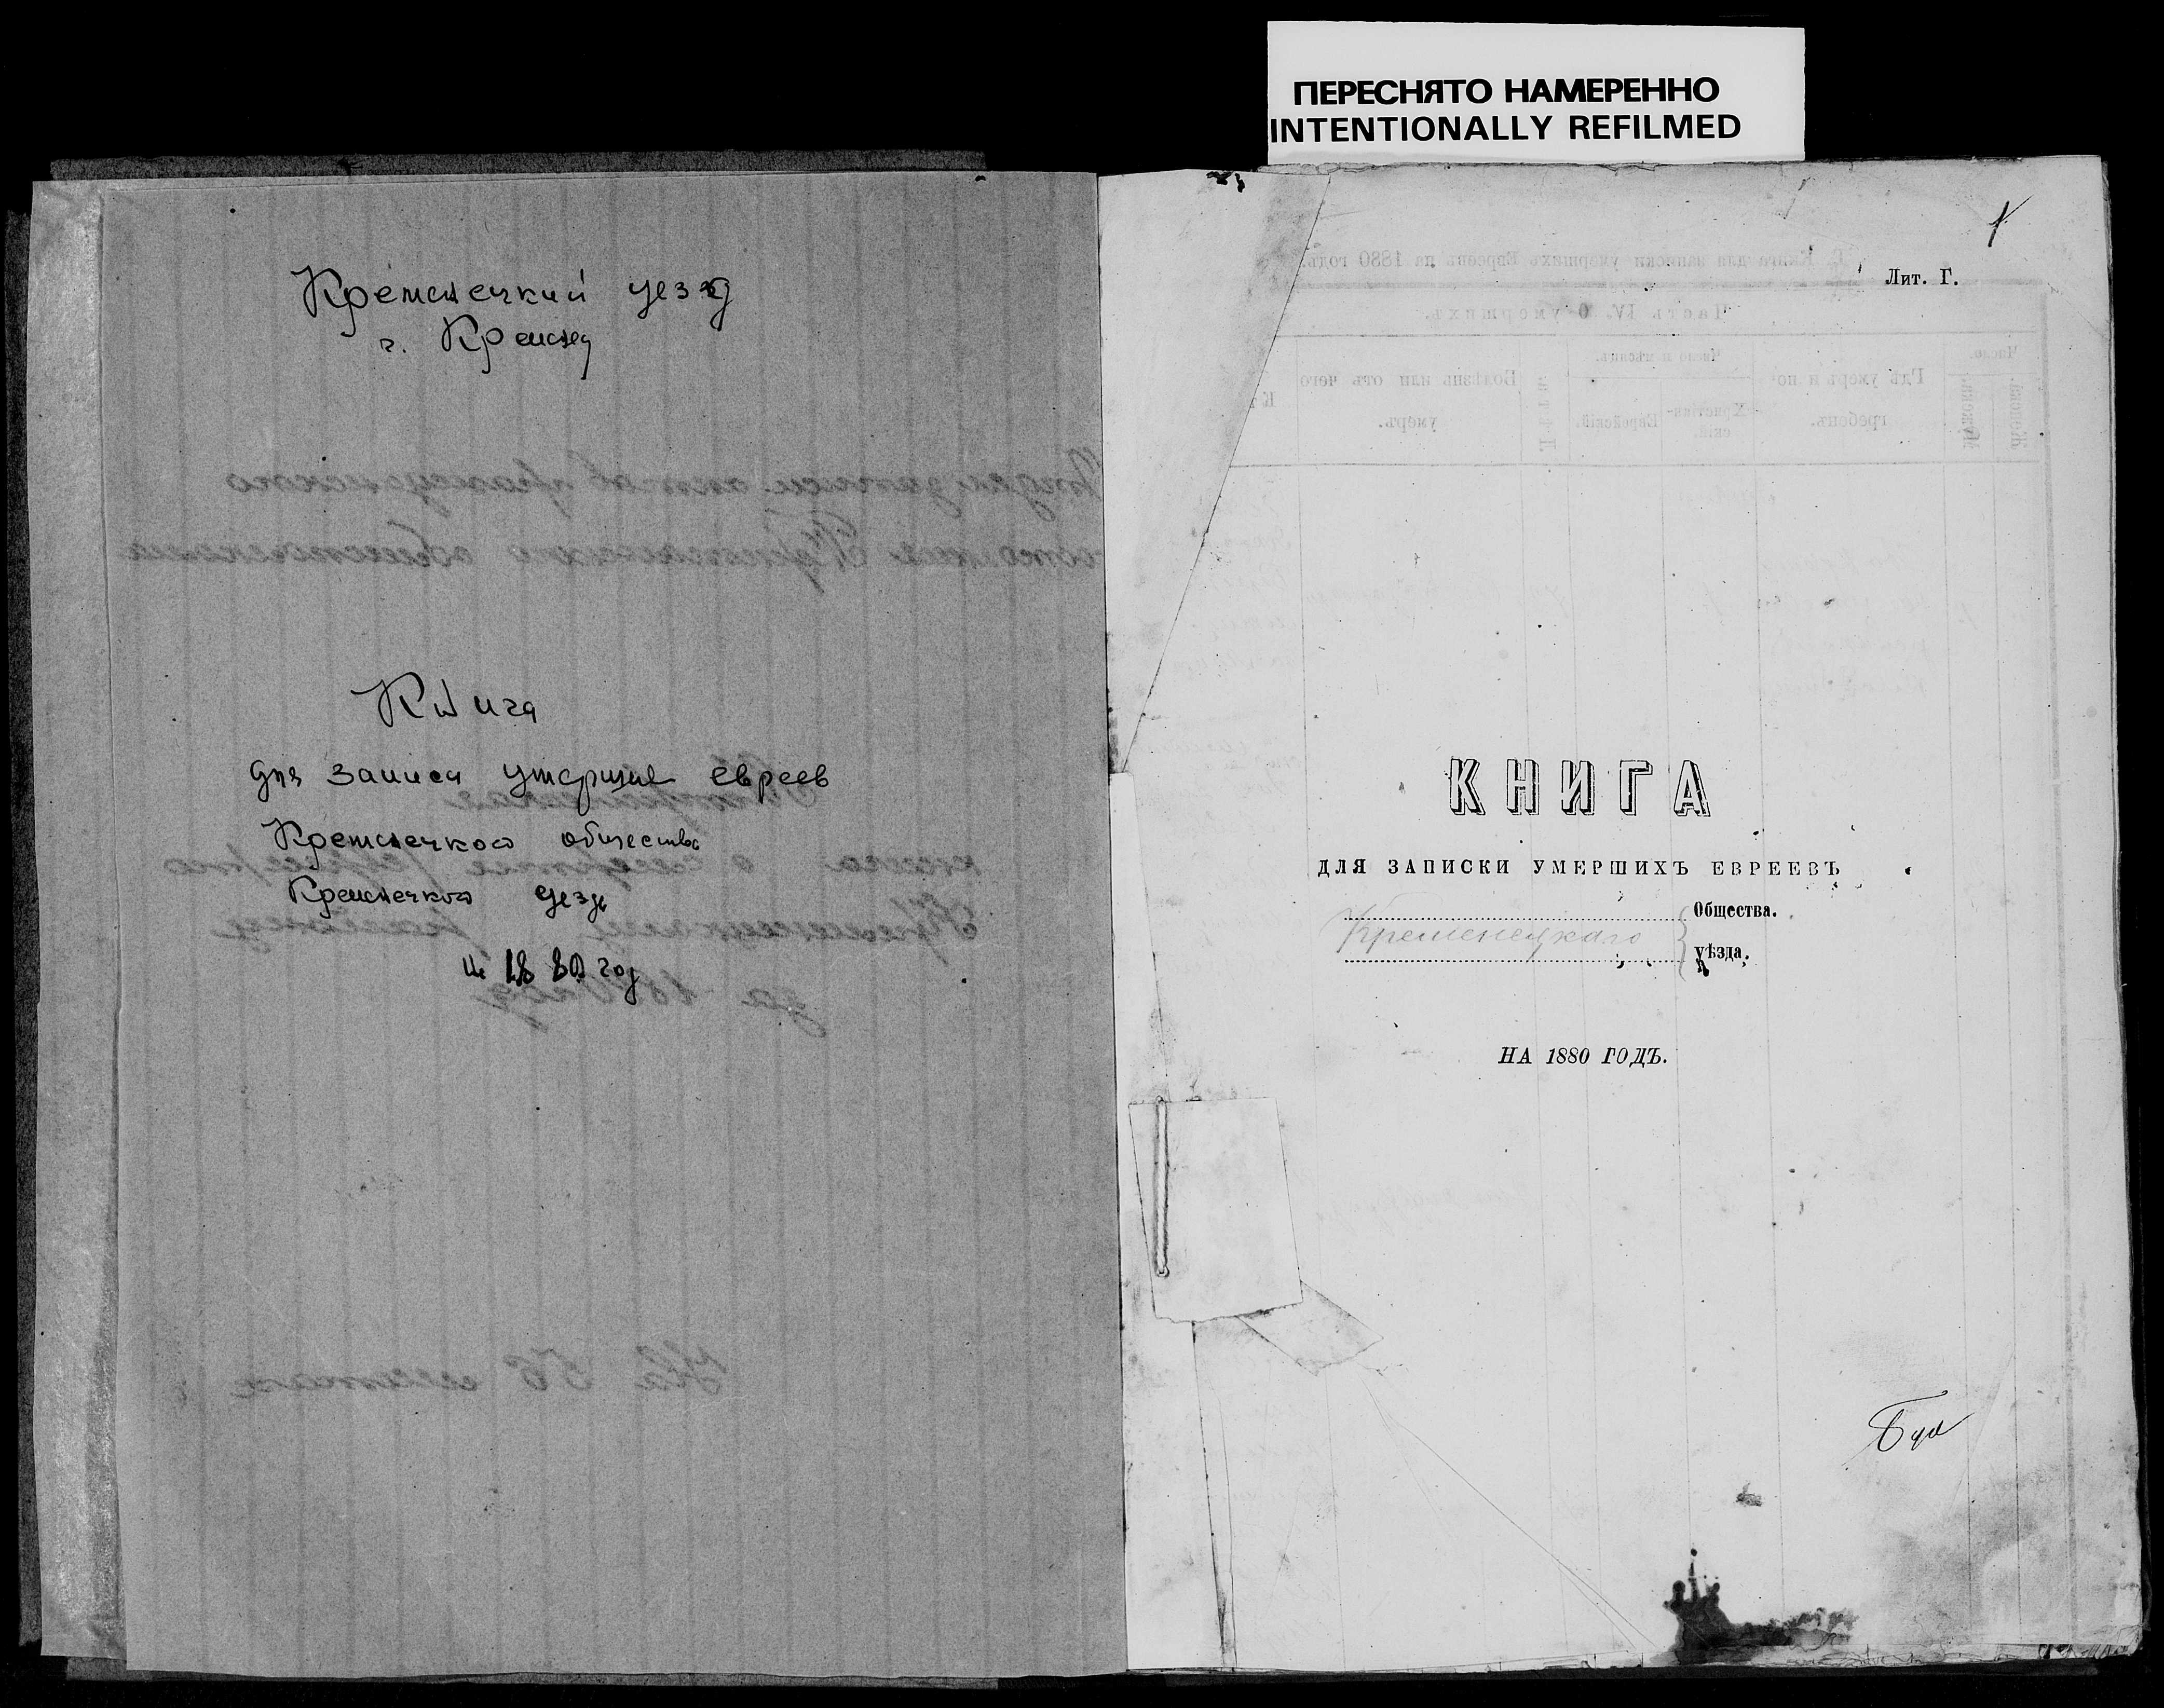 ПЕРЕСНЯТО НАМЕРЕННО
INTENTIONALLY REFILMED
Кременецкий уезд
г. Кременец
Книга
для записи умерших евреев
Кременецкого общества
Кременецкого уезда
на 1880 год
1
Лит. Г.
КНИГА
ДЛЯ ЗАПИСКИ УМЕРШИХЪ ЕВРЕЕВЪ
Общества.
Кременецкаго
уѣзда.
НА 1880 ГОДЪ.